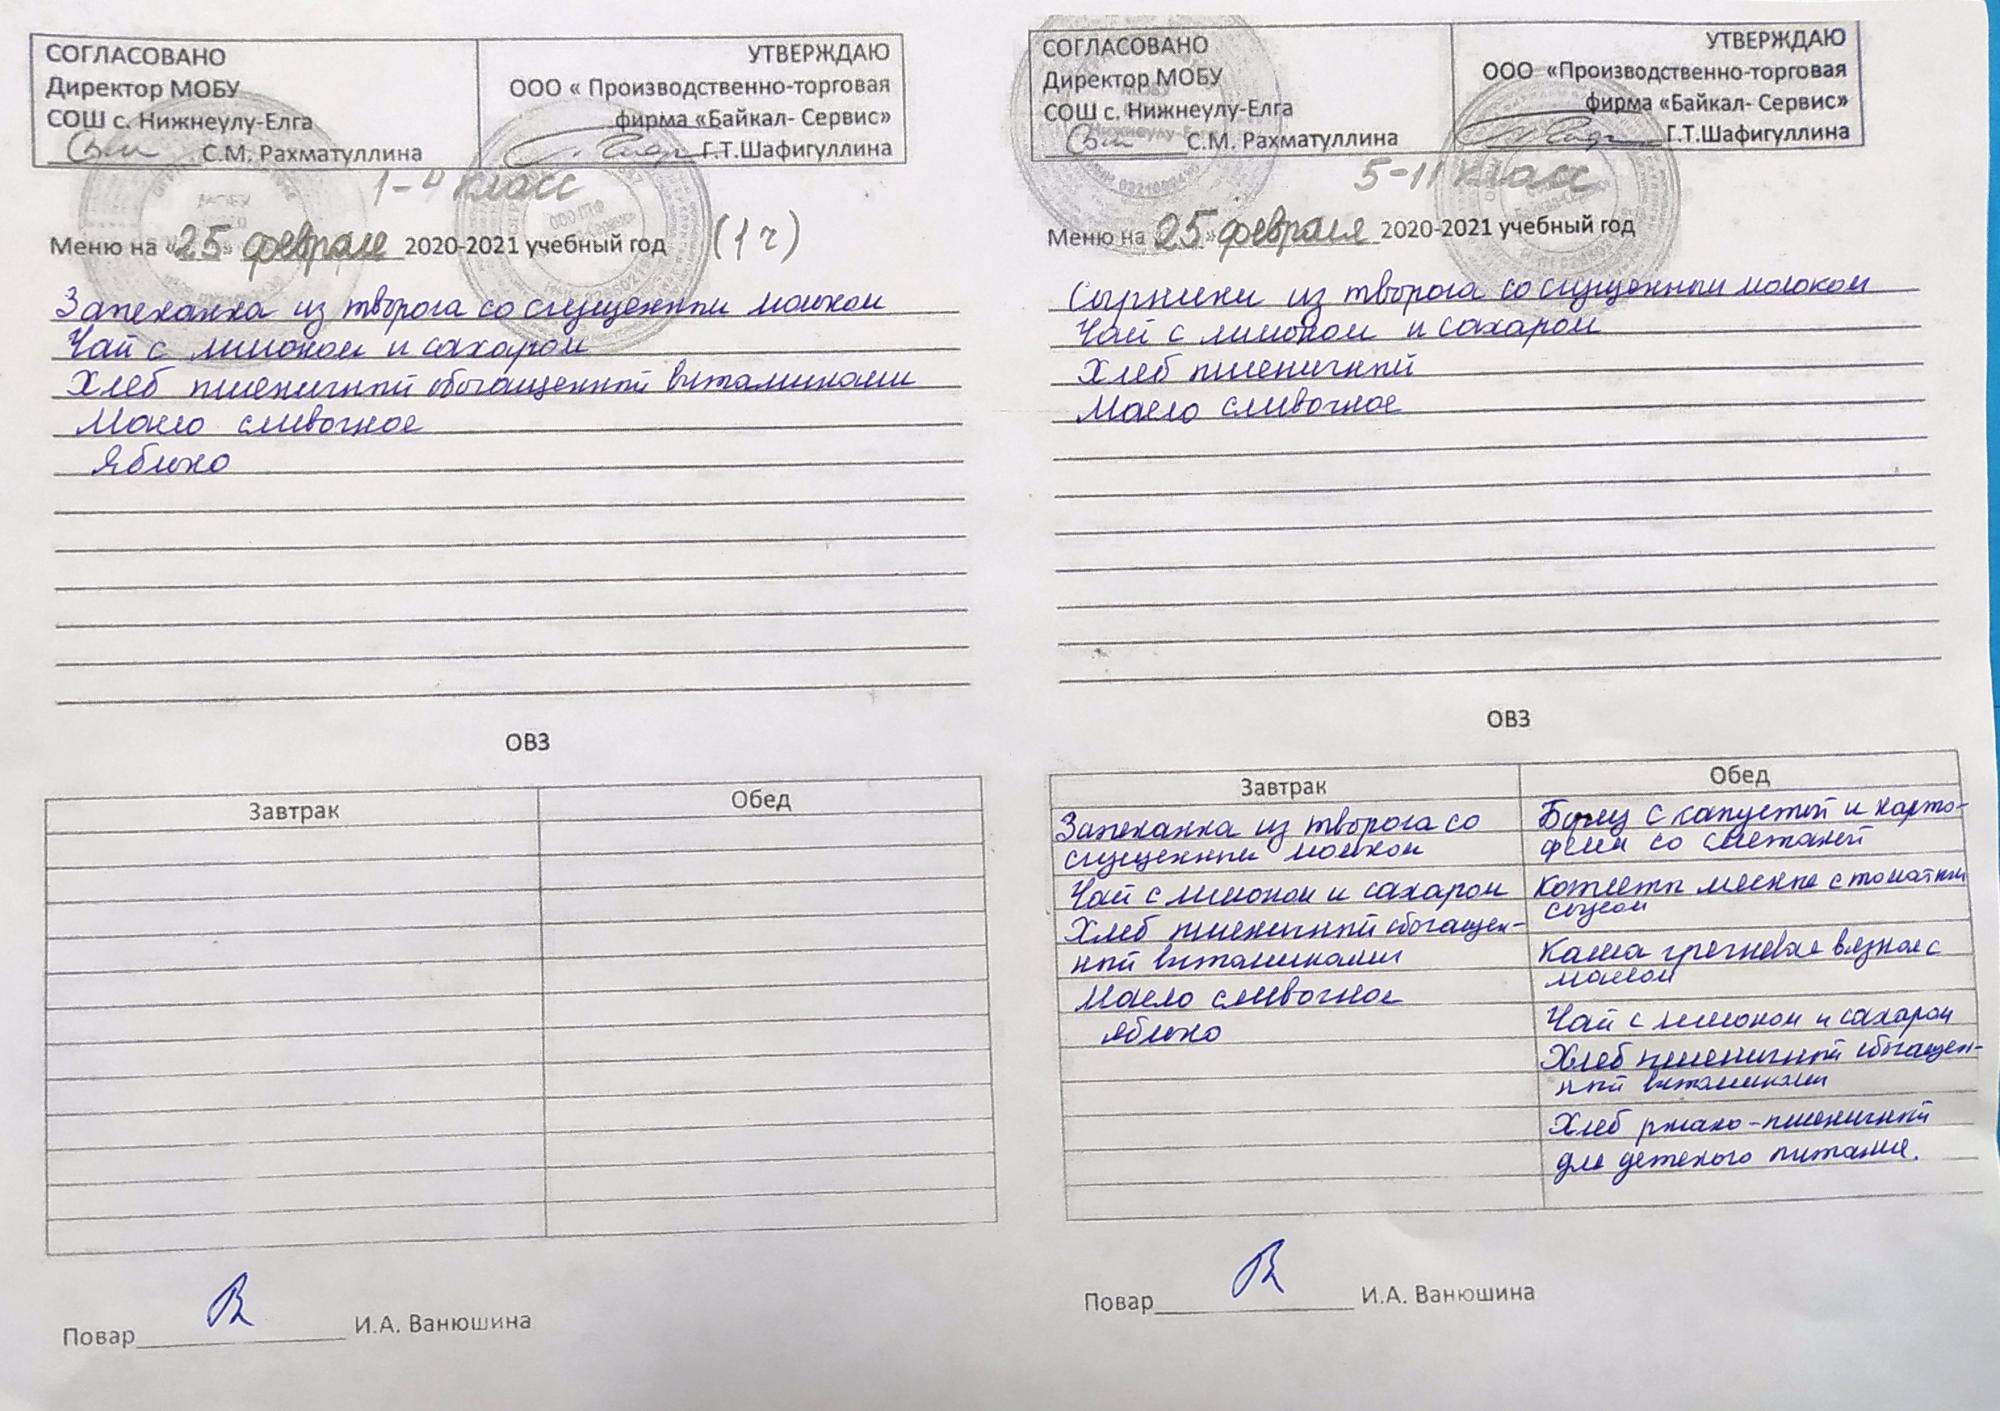 СОГЛАСОВАНО
Директор МОБУ
СОШ с. Нижнеулу-Елга
С.М. Рахматуллина
УТВЕРЖДАЮ
ООО « Производственно-торговая
фирма «Байкал- Сервис»
Г.Т.Шафигуллина
1-4 класс
Меню на «25» февраля 2020-2021 учебный год (1ч)
Запеканка из творога со сгущенным молоком
Чай с лимоном и сахаром
Хлеб пшеничный обогащенный витаминами
Масло сливочное
Яблоко
ОВЗ
Завтрак Обед
Повар И.А. Ванюшина
СОГЛАСОВАНО
Директор МОБУ
СОШ с. Нижнеулу-Елга
С.М. Рахматуллина
УТВЕРЖДАЮ
ООО «Производственно-торговая
фирма «Байкал- Сервис»
Г.Т.Шафигуллина
5-11 класс
Меню на 25» февраля 2020-2021 учебный год
Сырники из творога со сгущенным молоком
Чай с лимоном и сахаром
Хлеб пшеничный
Масло сливочное
ОВЗ
Завтрак
Запеканка из творога со
сгущенным молоком
Чай с лимоном и сахаром
Хлеб пшеничный обогащен-
ный витаминами
Масло сливочное
яблоко
Обед
Борщ с капустой и карто-
фелем со сметаной
Котлеты мясные с томатным
соусом
Каша гречневая вязкая с
маслом
Чай с лимоном и сахаром
Хлеб пшеничный обогащен-
ный витаминами
Хлеб ржано-пшеничный
для детского питания.
Повар И.А. Ванюшина